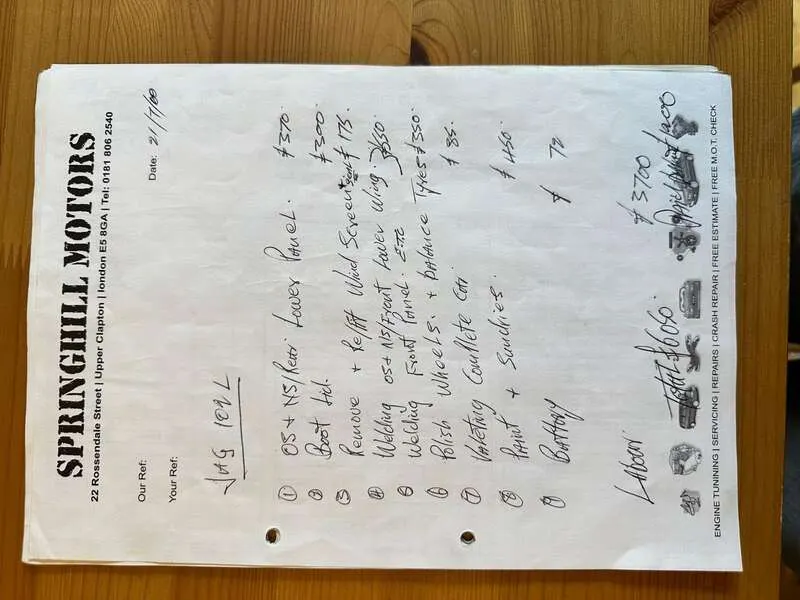 SPRINGHILL MOTORS
22 Rossendale Street | Upper Clapton | london E5 8GA | Tel: 0181 806 2540
Our Ref:
Date: 21/7/00
Your Ref:
JAG 102L
① OS + NS/Rear Lower Panel. £370.
② Boot Lid. £300.
③ Remove + Re/fit Wind Screen £175.
④ Welding OS+NS/Front Lower Wing £550
⑤ Welding Front Panel. ETC
⑥ Polish Wheels. + balance Tyres £350.
⑦ Valeting Complete Car. £85.
⑧ Paint + Sundries. £450.
⑨ Battery £72
Labour. £3700
Total £6050. 400
ENGINE TUNINING | SERVICING | REPAIRS | CRASH REPAIR | FREE ESTIMATE | FREE M.O.T. CHECK